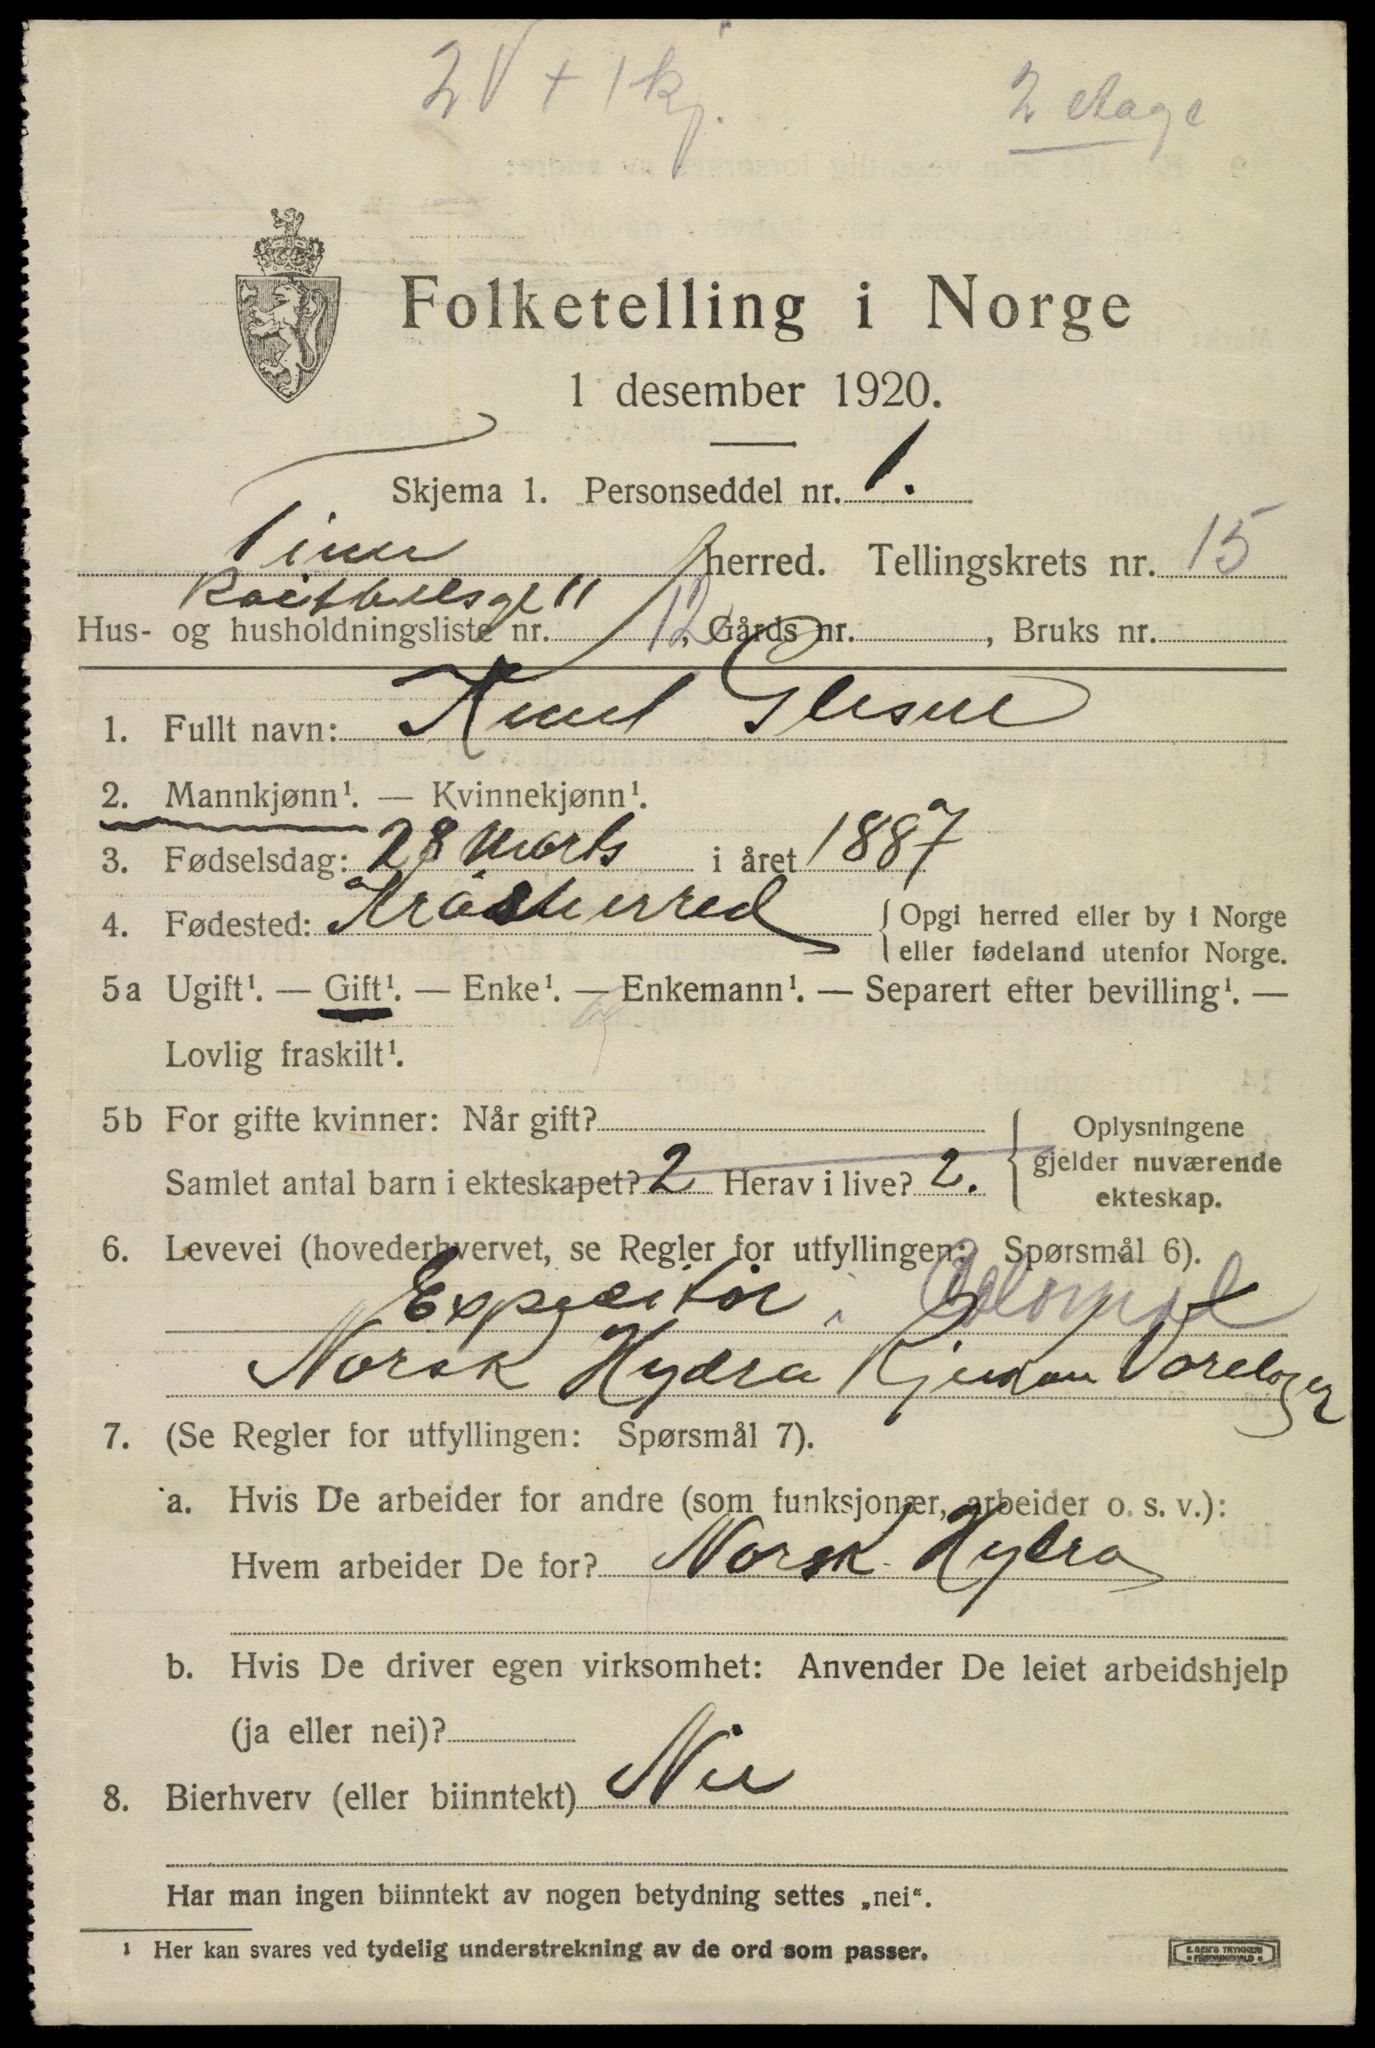 2 V + 1 kj.
2 etage
Folketelling i Norge
1 desember 1920.
Skjema 1. Personseddel nr. 1.
Tinn herred. Tellingskrets nr. 15
11
Hus- og husholdningsliste nr. 12, Gårds nr. , Bruks nr.
1. Fullt navn: Knut Glesne
2. Mannkjønn¹. — Kvinnekjønn¹.
3. Fødselsdag: 28 Marts i året 1887
4. Fødested: Krødsherred { Opgi herred eller by i Norge
eller fødeland utenfor Norge.
5a Ugift¹. — Gift¹. — Enke¹. — Enkemann¹. — Separert efter bevilling¹. —
Lovlig fraskilt¹.
5b For gifte kvinner: Når gift? { Oplysningene
gjelder nuværende
Samlet antal barn i ekteskapet? 2 Herav i live? 2.
ekteskap.
6. Levevei (hovederhvervet, se Regler for utfyllingen: Spørsmål 6).
Expeditör i
Norsk Hydro Rjukan Varelager
7. (Se Regler for utfyllingen: Spørsmål 7).
a. Hvis De arbeider for andre (som funksjonær, arbeider o. s. v.):
Hvem arbeider De for? Norsk Hydro
b. Hvis De driver egen virksomhet: Anvender De leiet arbeidshjelp
(ja eller nei)?
8. Bierhverv (eller biinntekt) Nei
Har man ingen biinntekt av nogen betydning settes „nei“.
¹ Her kan svares ved tydelig understrekning av de ord som passer.